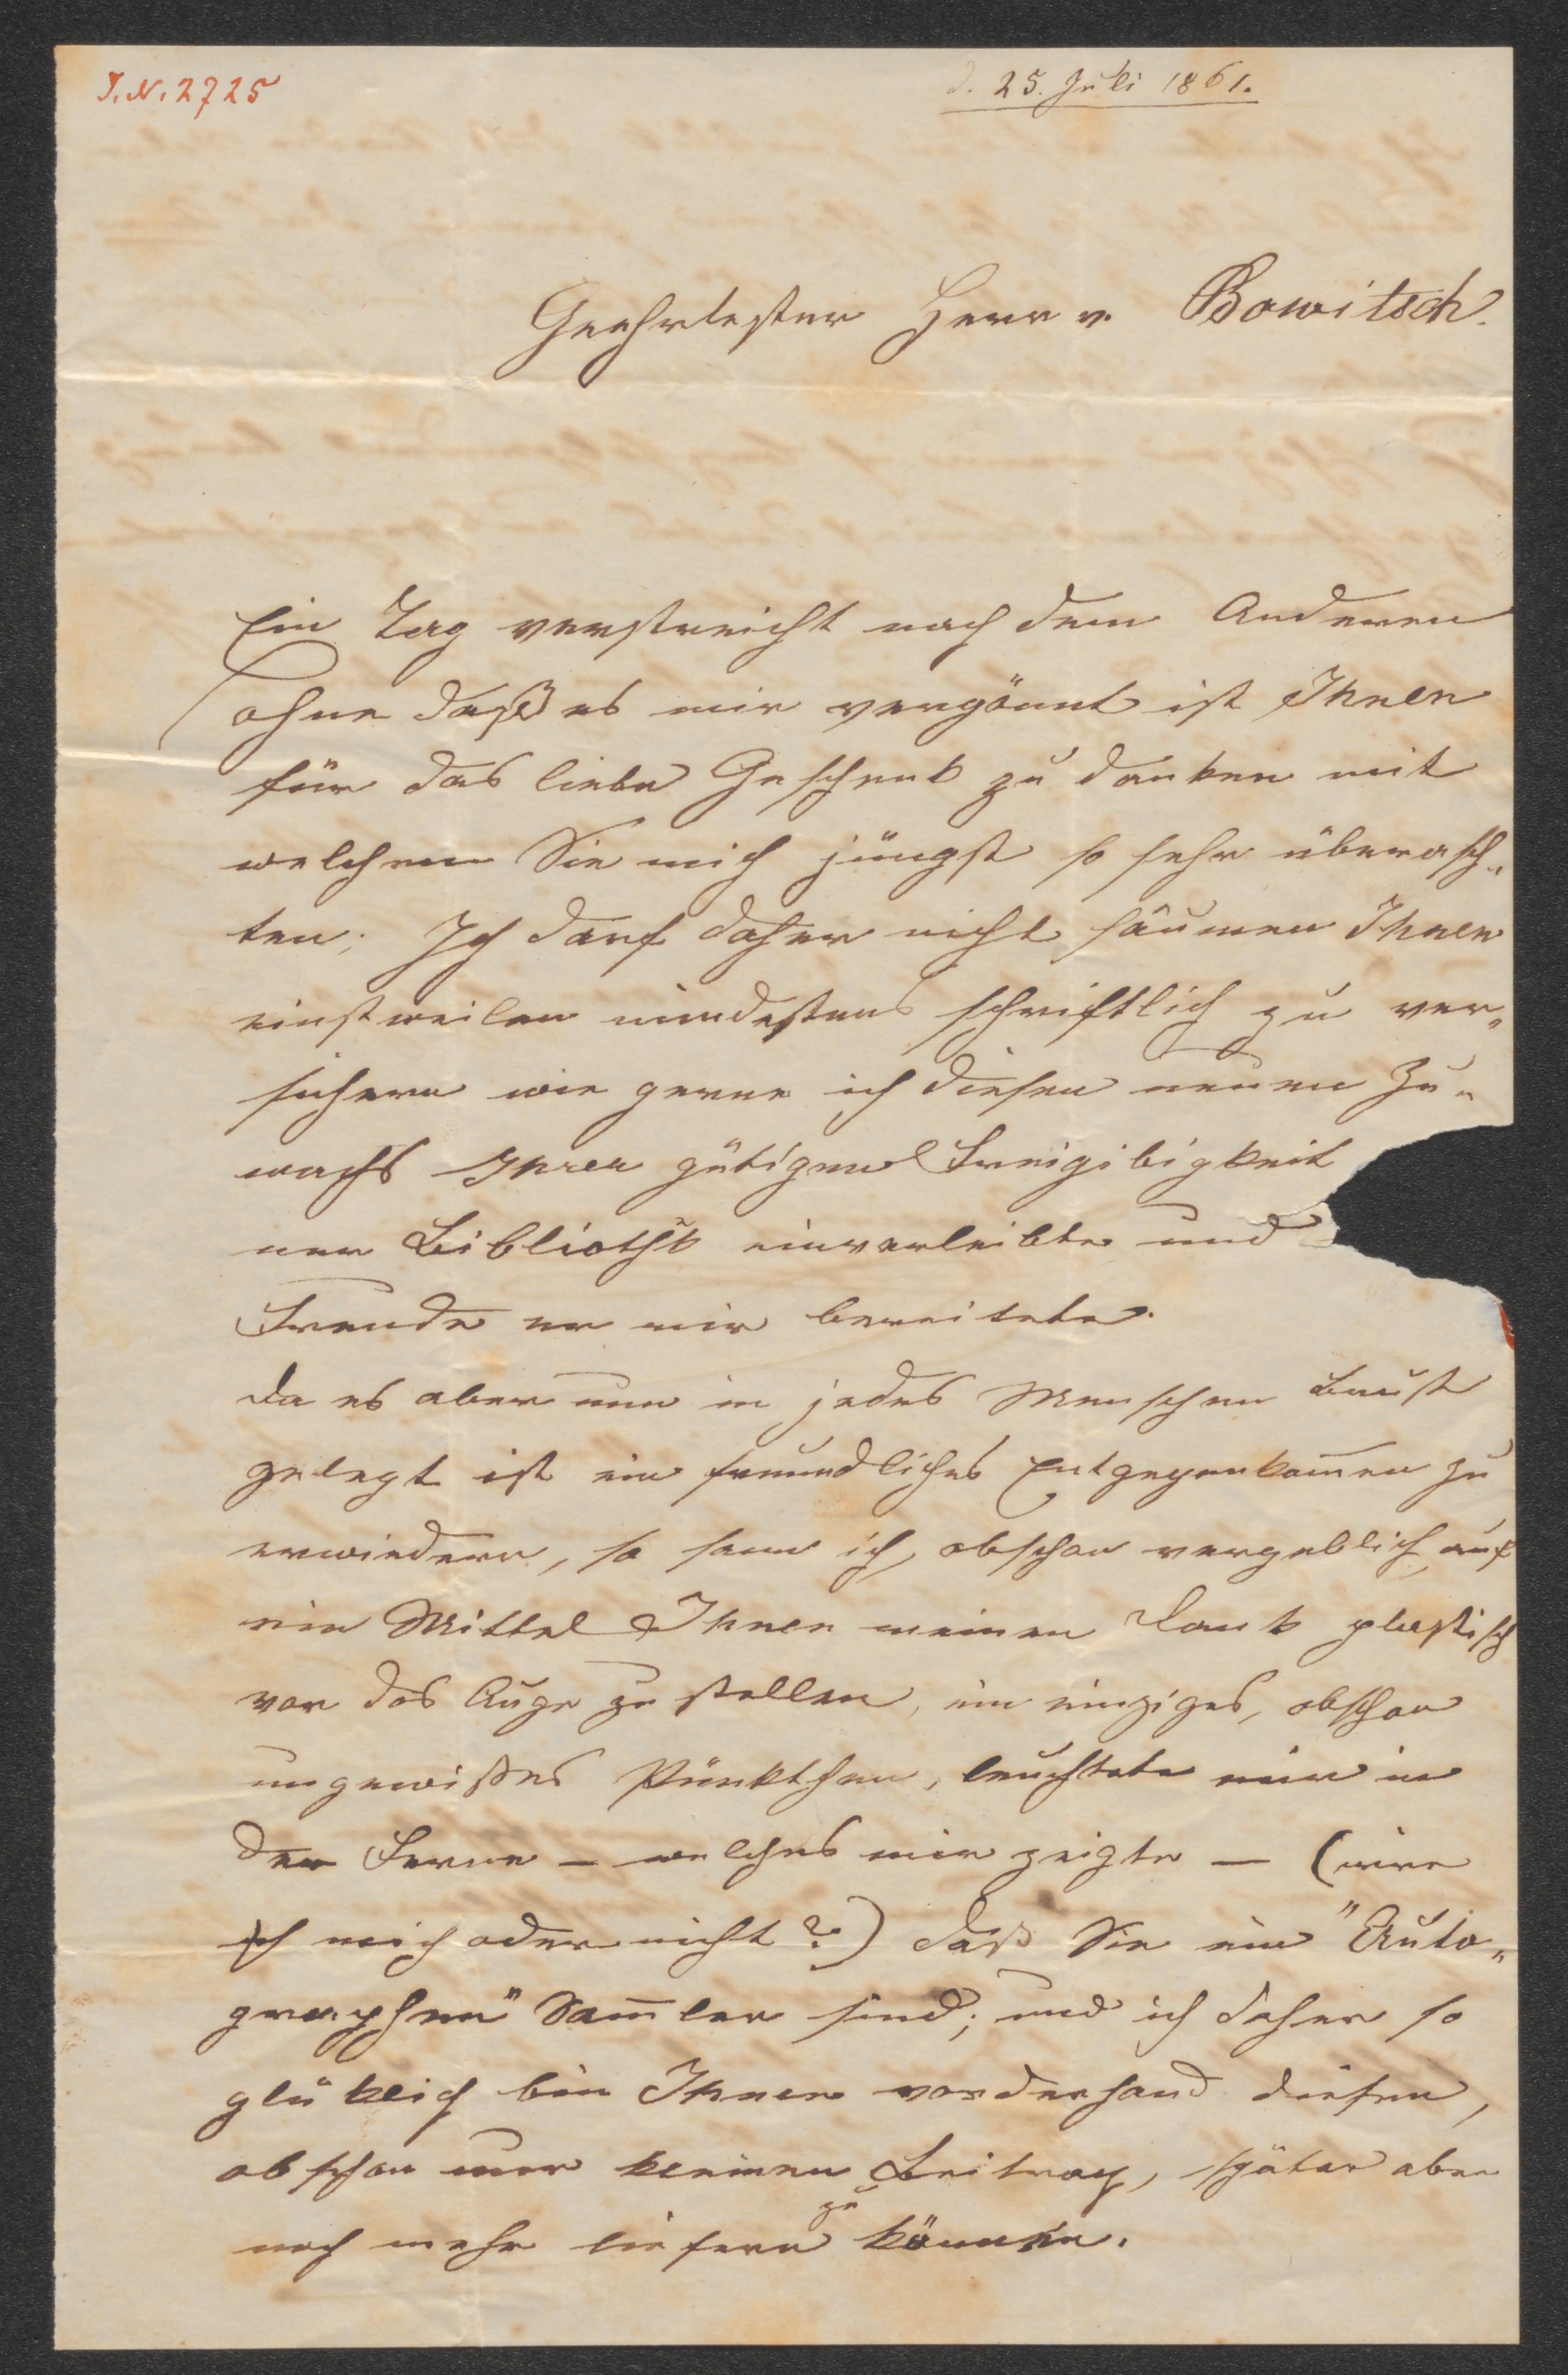 I.N. 2725
d. 25. Juli 1861.
Geehrtester Herr v. Bowitsch.
Ein Tag verstreicht nach dem Anderen
ohne daß es mir vergönnt ist Ihnen
für das liebe Geschenk zu danken mit
welchem Sie mich jüngst so sehr überasch„
ten; Ich darf daher nicht säumen Ihnen
einstweilen mindestens schriftlich zu ver„
sichern wie gerne ich diesen neuen Zu„
wachs Ihrer gütigen Freigibigkeit
ner Bibliothek einverleibte und
Freude er mir bereitete.
Da es aber nun in jedes Menschen Brust
gelegt ist ein freundliches Entgegenkom̅en zu
erwiedern, so sann ich, obschon vergeblich, auf
ein Mittel Ihnen meinen Dank plastisch
vor das Auge zu stellen, ein einziges, obschon
ungewißes Pünktchen, leuchtete mir in
der Ferne — welches mir zeigte — (irre
ich mich oder nicht?) daß Sie ein "Auto„
graphen" Sam̅ler sind; und ich daher so
glüklich bin Ihnen vorderhand diesen,
obschon nur kleinen Beitrag, später aber
noch mehr liefern zu können.